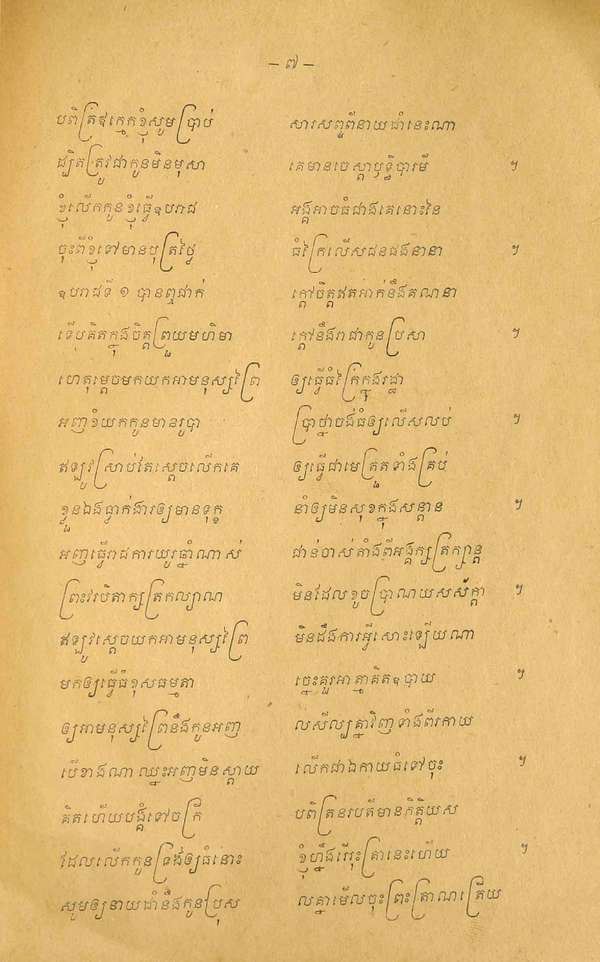 – ៧ –
បពិត្រឪក្មេកខ្ញុំសូមប្រាប់ សារសព្ទពីនាយជាំនេះណា
ដ្បិតត្រូវជាកូនមិនមុសា គេមានចេស្តាឫទ្ធិបារមី ៗ
ខ្ញុំលើកកូនខ្ញុំធ្វើឧបរាជ អង្គអាចធំជាងគេនោះនៃ
ចុះពីខ្ញុំទៅមានបុត្រថ្លៃ ធំក្រៃលើសជនផងនានា ៗ
ឧបរាជទី ១ បានឮជាក់ ក្តៅចិត្តឥតអាក់នឹងគណនា
ទើបគិតក្នុងចិត្តព្រួយមហិមា ក្តៅនឹងរាជាកូនប្រសា ៗ
ហេតុម្តេចមកយកអាមនុស្សព្រៃ ឲ្យធ្វើធំក្រៃក្នុងរដ្ឋា
អញខំយកកូនមានរូបា ប្រាថ្នាចង់ធំឲ្យលើសលប់ ៗ
ឥឡូវស្រាប់តែស្តេចលើកគេ ឲ្យធ្វើជាមេត្រួតទាំងគ្រប់
ខ្លួនឯងធ្លាក់ងារឲ្យមានទុក្ខ នាំឲ្យមិនសុខក្នុងសន្តាន ៗ
អញធ្វើរាជការយូរឆ្នាំណាស់ ជាន់ចាស់តាំងពីអង្គក្សត្រក្សាន្ត
ព្រះវរបិតាក្សត្រកល្យាណ មិនដែលខូចប្រាណយសស័ក្តា ៗ
ឥឡូវស្តេចយកអាមនុស្សព្រៃ មិនដឹងការអ្វីសោះឡើយណា
មកឲ្យធ្វើធំខុសធម្មតា ច្នេះគួរអាត្មាគិតឧបាយ ៗ
ឲ្យអាមនុស្សព្រៃនឹងកូនអញ លសីល្បគ្នាវិញទាំងពីរកាយ
បើខាងណាឈ្នះអញមិនស្តាយ លើកជាឯកាយធំទៅចុះ ៗ
គិតហើយបង្គំទៅចក្រី បពិត្រនរបតីមានកិត្តិយស
ដែលលើកកូនទ្រង់ឲ្យធំនោះ ខ្ញុំហ្នឹងរើរុះគ្រានេះហើយ ៗ
សូមឲ្យនាយជាំនឹងកូនប្រុស លគ្នាមើលចុះព្រះត្រាណត្រើយ